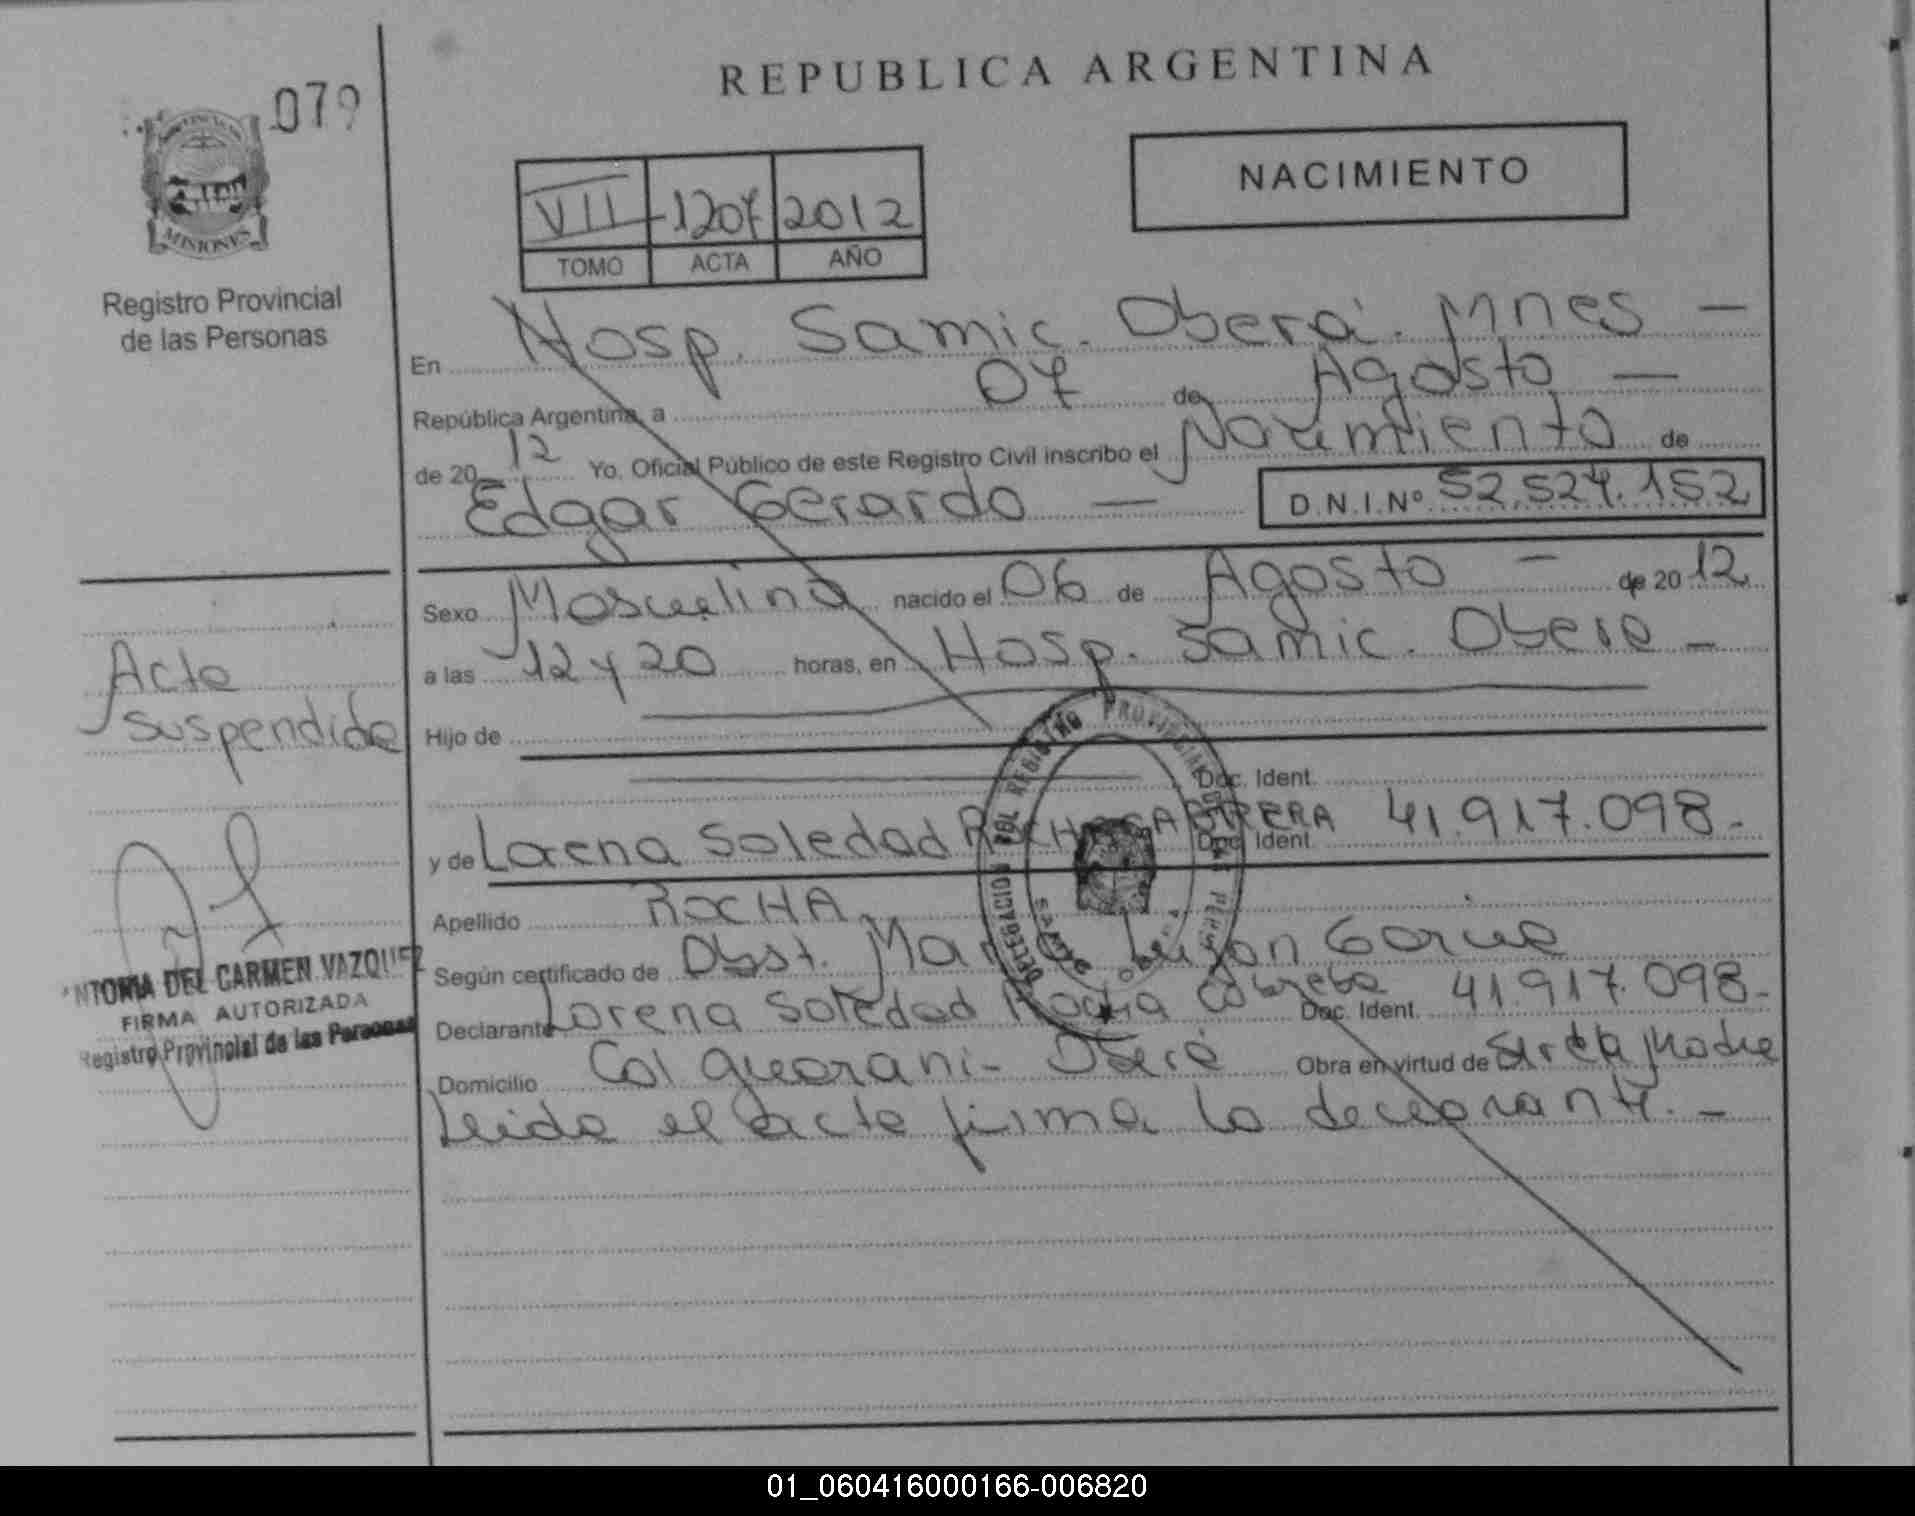 079
REPUBLICA ARGENTINA
NACIMIENTO
VII 1207 2012
TOMO ACTA AÑO
MISIONES
Registro Provincial
de las Personas
En Hosp. Samic. Oberá. Mnes —
República Argentina, a 07 de Agosto —
de 20 12 Yo, Oficial Público de este Registro Civil inscribo el Nacimiento de
Edgar Gerardo — D.N.I.Nº 52.527.152
Sexo Masculino nacido el 06 de Agosto — de 20 12
a las 12 y 20 horas, en Hosp. Samic. Oberá —
Acta
suspendida
Hijo de
Doc. Ident.
y de Lorena Soledad ROCHA CABRERA Doc. Ident. 41.917.098.-
Apellido ROCHA
Según certificado de Obst. Luján
Declarante Lorena Soledad Rocha Doc. Ident. 41.917.098.-
Domicilio Col Guarani - Oberá Obra en virtud de Madre
Leida el acta firma la declarante. —
DELEGACION DEL REGISTRO PROVINCIAL DE LAS
DEL CARMEN VAZQUEZ
FIRMA AUTORIZADA
Registro Provincial de las Personas
01_060416000166-006820